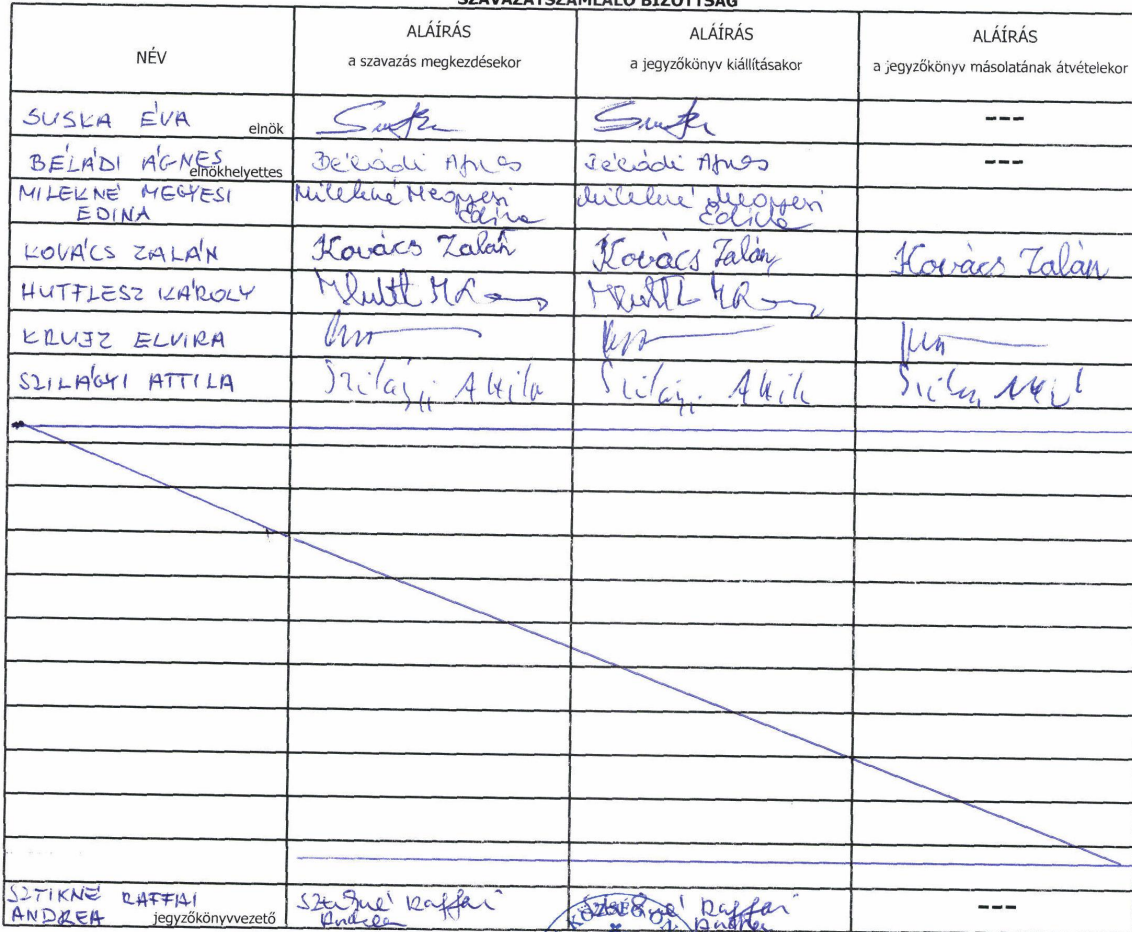 SZAVAZATSZÁMLÁLÓ BIZOTTSÁG
NÉV
ALÁÍRÁS
a szavazás megkezdésekor
ALÁÍRÁS
a jegyzőkönyv kiállításakor
ALÁÍRÁS
a jegyzőkönyv másolatának átvételekor
SUSKA ÉVA elnök ---
BÉLÁDI ÁGNES elnökhelyettes Béládi Ágnes Béládi Ágnes ---
MILEKNÉ MEGYESI Milekné Megyesi Milekné Megyesi
EDINA Edina Edina
KOVÁCS ZALÁN Kovács Zalán Kovács Zalán Kovács Zalán
HUTFLESZ KÁROLY
KRUJZ ELVIRA
SZILÁGYI ATTILA Szilágyi Attila Szilágyi Attila
SZTIKNÉ RAFFAI Sztikné Raffai Raffai
ANDREA jegyzőkönyvvezető Andrea Andrea ---